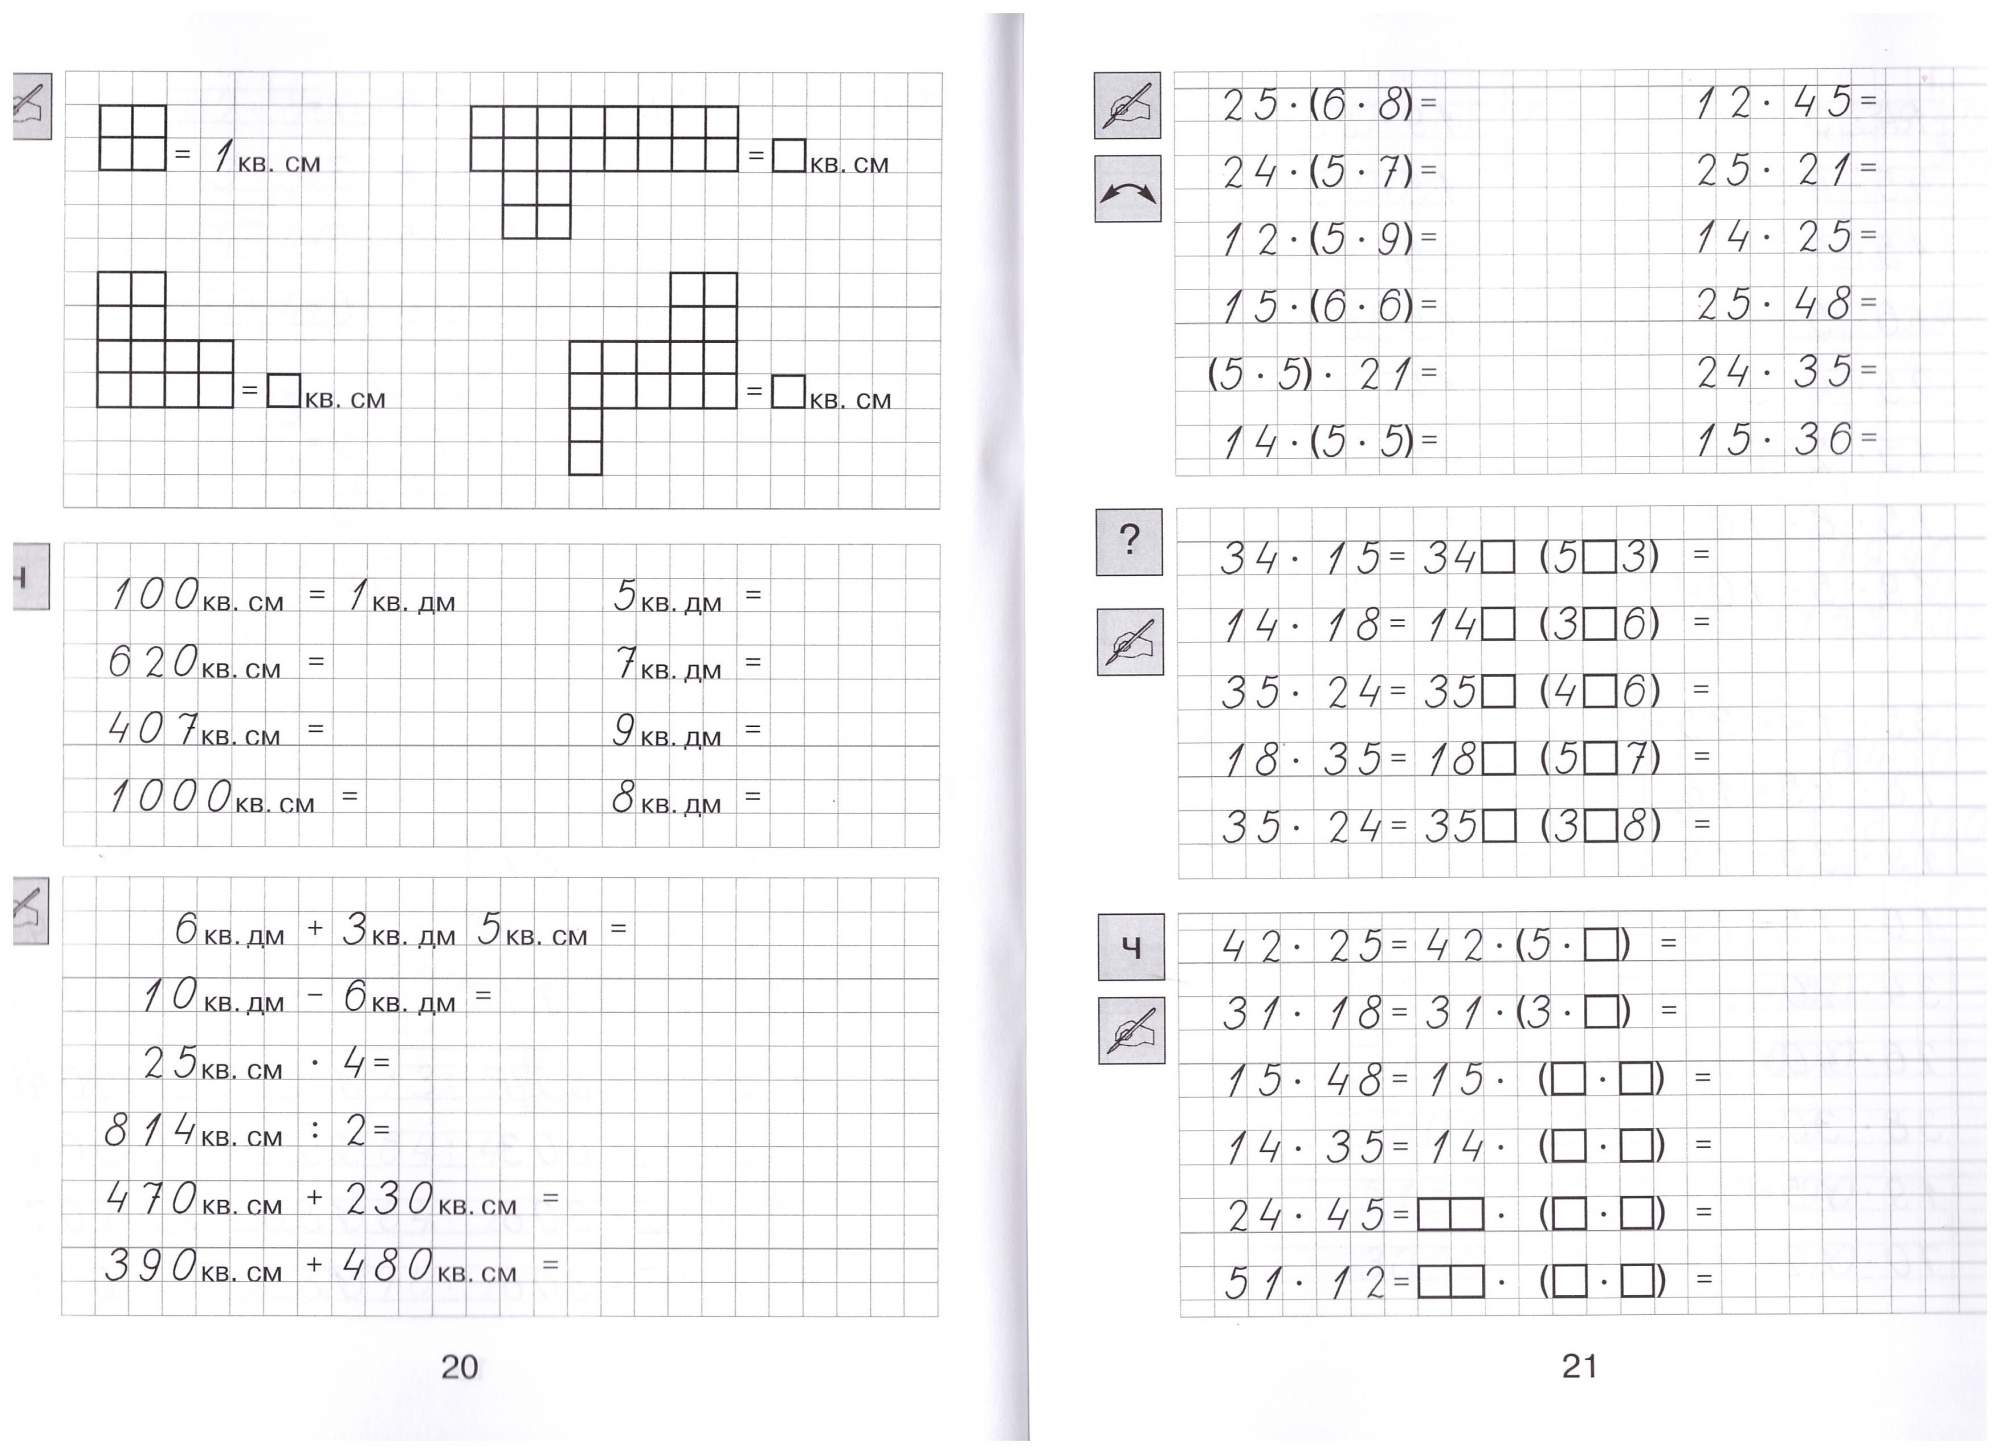 = 1 кв. см
= □ кв. см
= □ кв. см
= □ кв. см
100 кв. см = 1 кв. дм
5 кв. дм =
620 кв. см =
7 кв. дм =
407 кв. см =
9 кв. дм =
1000 кв. см =
8 кв. дм =
6 кв. дм + 3 кв. дм 5 кв. см =
10 кв. дм − 6 кв. дм =
25 кв. см · 4 =
814 кв. см : 2 =
470 кв. см + 230 кв. см =
390 кв. см + 480 кв. см =
20
25 · (6 · 8) =
12 · 45 =
24 · (5 · 7) =
25 · 21 =
12 · (5 · 9) =
14 · 25 =
15 · (6 · 6) =
25 · 48 =
(5 · 5) · 21 =
24 · 35 =
14 · (5 · 5) =
15 · 36 =
?
34 · 15 = 34 □ (5 □ 3) =
14 · 18 = 14 □ (3 □ 6) =
35 · 24 = 35 □ (4 □ 6) =
18 · 35 = 18 □ (5 □ 7) =
35 · 24 = 35 □ (3 □ 8) =
ч
42 · 25 = 42 · (5 · □) =
31 · 18 = 31 · (3 · □) =
15 · 48 = 15 · (□ · □) =
14 · 35 = 14 · (□ · □) =
24 · 45 = □□ · (□ · □) =
51 · 12 = □□ · (□ · □) =
21